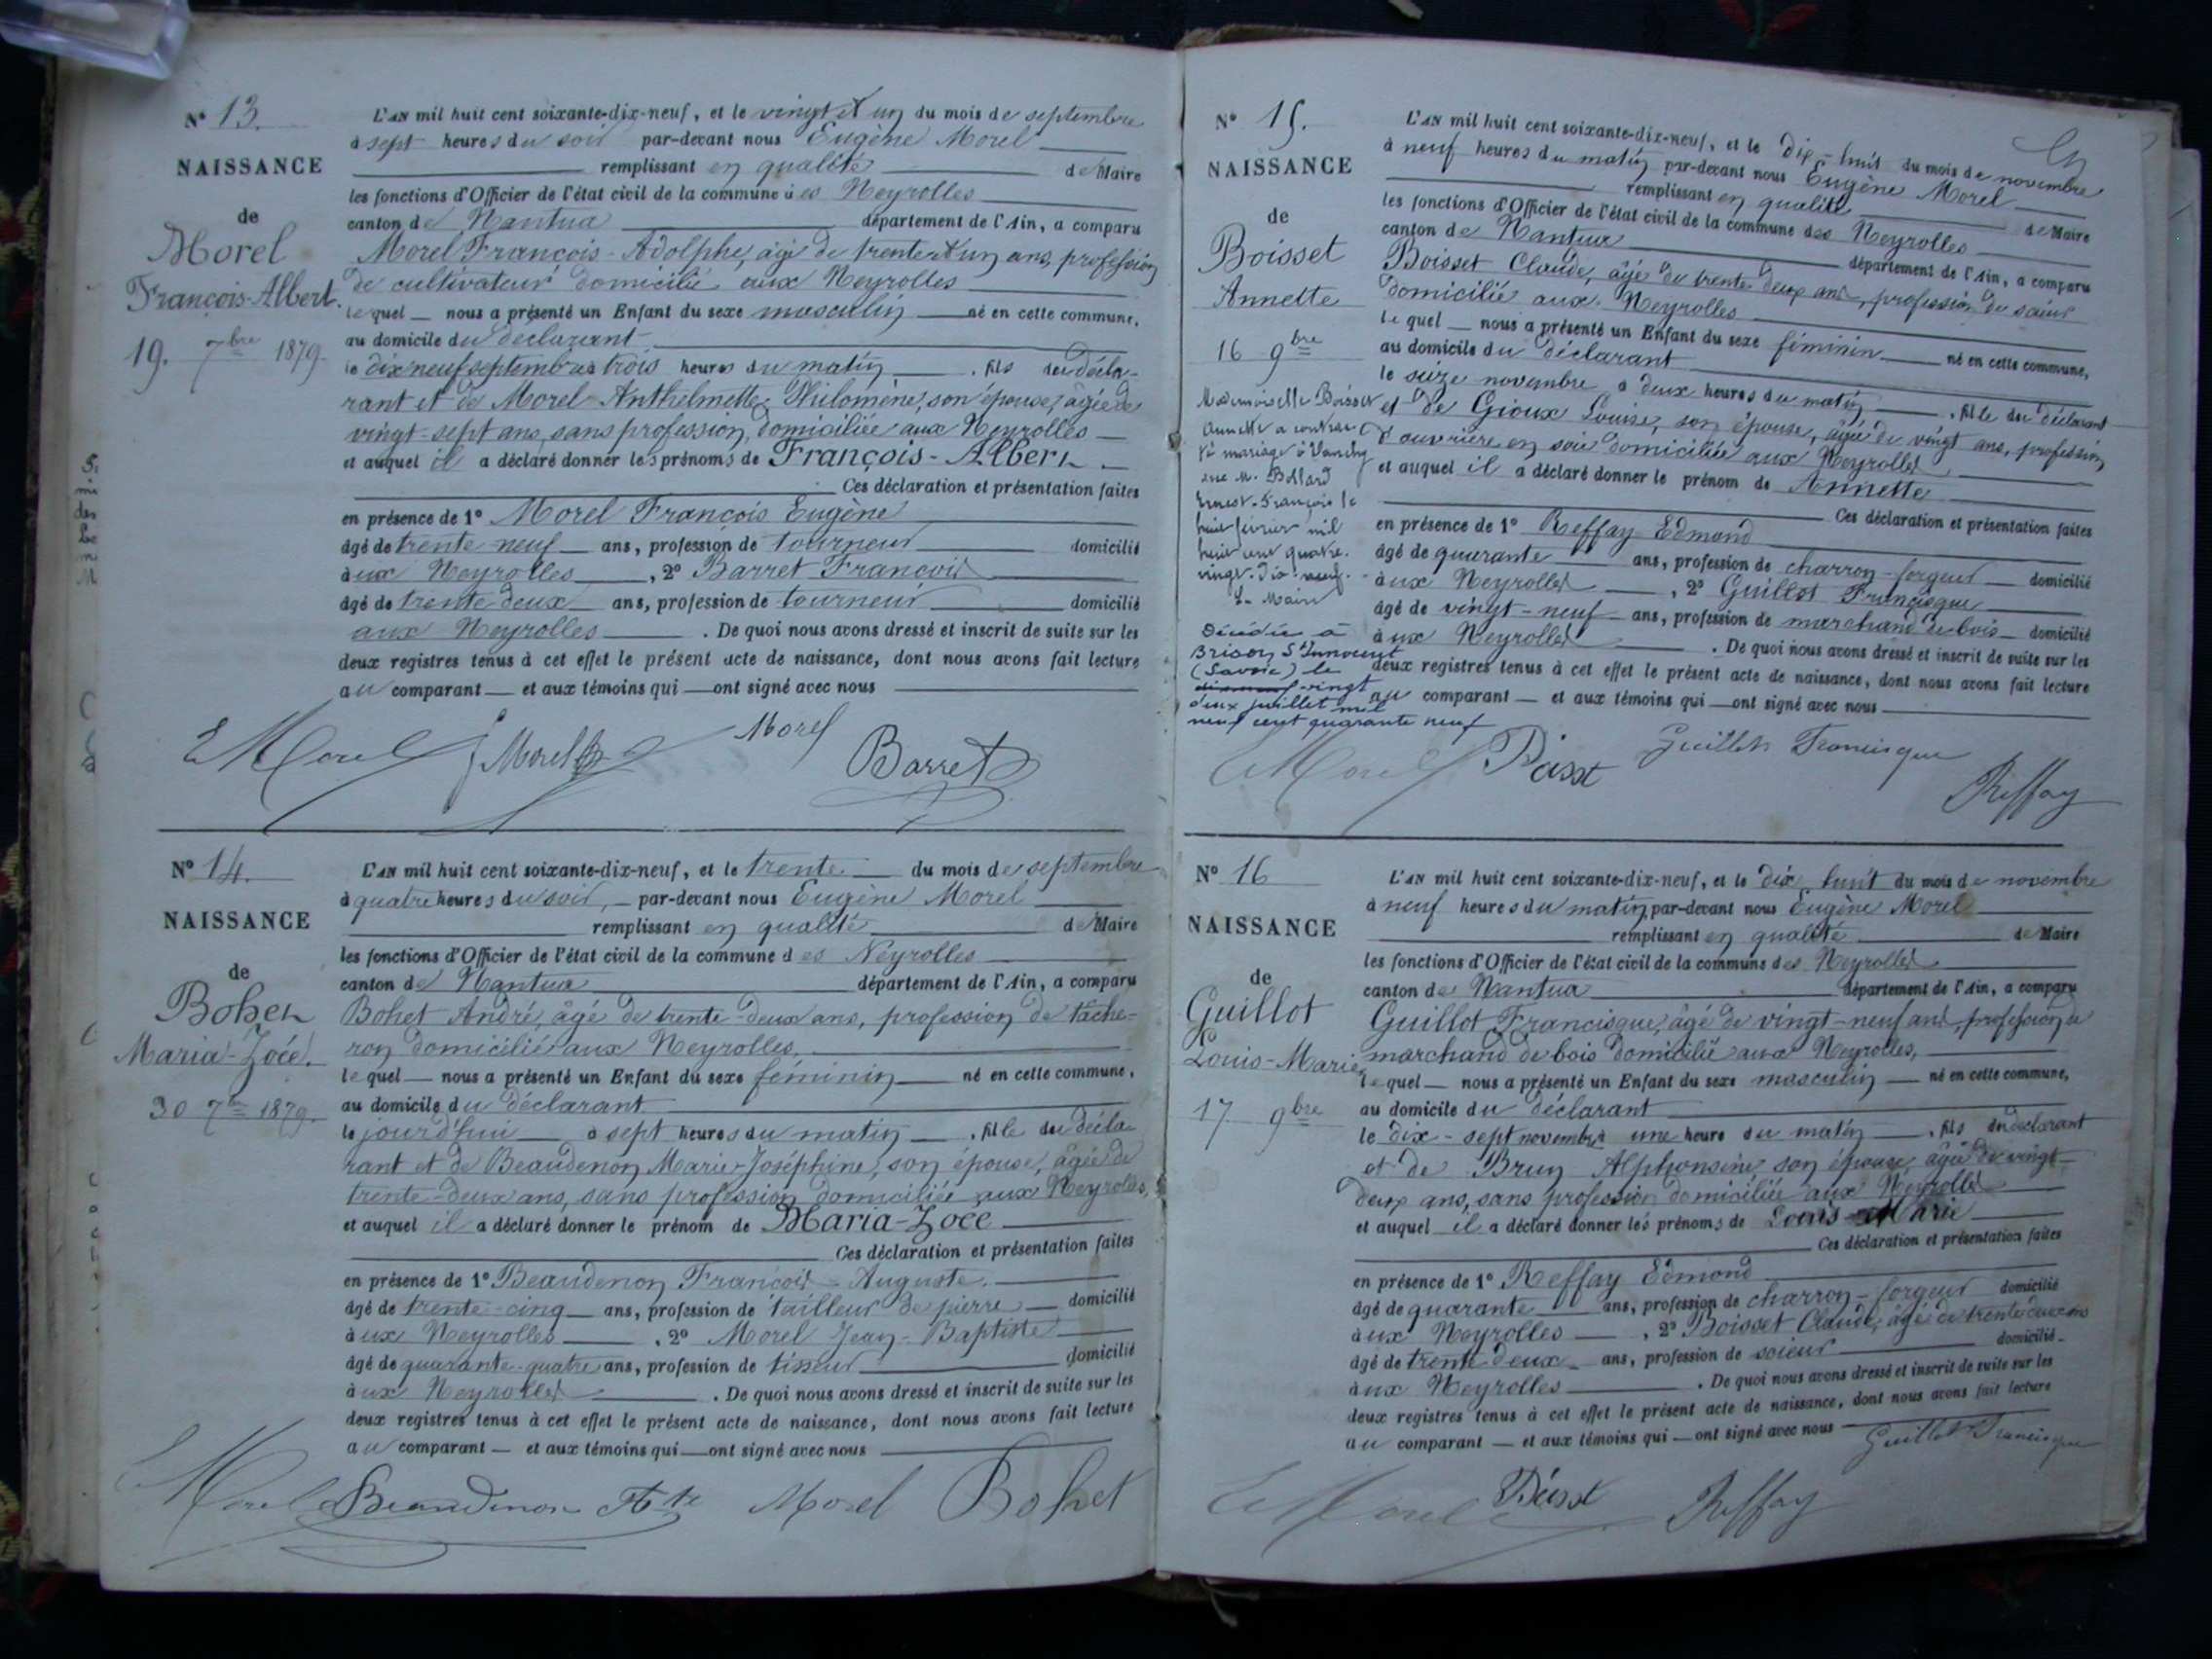 N° 13.
NAISSANCE
de
Morel
François-Albert.
19. 7bre 1879.
L'AN mil huit cent soixante-dix-neuf, et le vingt et un du mois de septembre
à sept heures du soir par-devant nous Eugène Morel
remplissant en qualité de Maire
les fonctions d'Officier de l'état civil de la commune des Neyrolles
canton de Nantua département de l'Ain, a comparu
Morel François-Adolphe, âgé de trente et un ans, profession
de cultivateur domicilié aux Neyrolles
lequel nous a présenté un Enfant du sexe masculin né en cette commune,
au domicile du déclarant
le dix neuf septembre à trois heures du matin, fils du décla-
rant et de Morel Anthelmette Philomène, son épouse, âgée de
vingt-sept ans, sans profession, domiciliée aux Neyrolles
et auquel il a déclaré donner les prénoms de François-Albert.
Ces déclaration et présentation faites
en présence de 1° Morel François Eugène
âgé de trente neuf ans, profession de tourneur domicilié
aux Neyrolles, 2° Barret François
âgé de trente deux ans, profession de tourneur domicilié
aux Neyrolles. De quoi nous avons dressé et inscrit de suite sur les
deux registres tenus à cet effet le présent acte de naissance, dont nous avons fait lecture
au comparant et aux témoins qui ont signé avec nous
E Morel Morel Morel Barret
N° 14.
NAISSANCE
de
Bohet
Maria-Zoée.
30 7bre 1879.
L'AN mil huit cent soixante-dix-neuf, et le trente du mois de septembre
à quatre heures du soir, par-devant nous Eugène Morel
remplissant en qualité de Maire
les fonctions d'Officier de l'état civil de la commune des Neyrolles
canton de Nantua département de l'Ain, a comparu
Bohet André, âgé de trente-deux ans, profession de tâche-
ron domicilié aux Neyrolles,
lequel nous a présenté un Enfant du sexe féminin né en cette commune,
au domicile du déclarant
le jourd'hui à sept heures du matin, fille du décla-
rant et de Beaudenon Marie-Joséphine, son épouse, âgée de
trente-deux ans, sans profession domiciliée aux Neyrolles,
et auquel il a déclaré donner le prénom de Maria-Zoée
Ces déclaration et présentation faites
en présence de 1° Beaudenon François-Auguste.
âgé de trente-cinq ans, profession de tailleur de pierre domicilié
aux Neyrolles, 2° Morel Jean-Baptiste
âgé de quarante-quatre ans, profession de tisseur domicilié
aux Neyrolles. De quoi nous avons dressé et inscrit de suite sur les
deux registres tenus à cet effet le présent acte de naissance, dont nous avons fait lecture
au comparant et aux témoins qui ont signé avec nous
E Morel Beaudenon Morel Bohet
N° 15.
NAISSANCE
de
Boisset
Annette
16 9bre
Mademoiselle Boisset
Annette a contrac
té mariage à Vanchy
avec M. Bollard
Ernest-François le
huit février mil
huit cent quatre-
vingt-dix-neuf.
Le Maire
Décédée à
Brison St Innocent
(Savoie) le
vingt
deux juillet mil
neuf cent quarante neuf
L'AN mil huit cent soixante-dix-neuf, et le dix-huit du mois de novembre
à neuf heures du matin par-devant nous Eugène Morel
remplissant en qualité de Maire
les fonctions d'Officier de l'état civil de la commune des Neyrolles
canton de Nantua département de l'Ain, a comparu
Boisset Claude, âgé de trente deux ans, profession de soieur
domicilié aux Neyrolles
lequel nous a présenté un Enfant du sexe féminin né en cette commune,
au domicile du déclarant
le seize novembre à deux heures du matin, fille du déclarant
et de Gioux Louise, son épouse, âgée de vingt ans, profession
d'ouvrière en soie domiciliée aux Neyrolles
et auquel il a déclaré donner le prénom de Annette
Ces déclaration et présentation faites
en présence de 1° Reffay Edmond
âgé de quarante ans, profession de charron-forgeur domicilié
aux Neyrolles, 2° Guillot Francisque
âgé de vingt-neuf ans, profession de marchand de bois domicilié
aux Neyrolles. De quoi nous avons dressé et inscrit de suite sur les
deux registres tenus à cet effet le présent acte de naissance, dont nous avons fait lecture
au comparant et aux témoins qui ont signé avec nous
E Morel Guillot Francisque Reffay
N° 16
NAISSANCE
de
Guillot
Louis-Marie
17 9bre
L'AN mil huit cent soixante-dix-neuf, et le dix huit du mois de novembre
à neuf heures du matin, par-devant nous Eugène Morel
remplissant en qualité de Maire
les fonctions d'Officier de l'état civil de la commune des Neyrolles
canton de Nantua département de l'Ain, a comparu
Guillot Francisque, âgé de vingt-neuf ans, profession de
marchand de bois domicilié aux Neyrolles,
lequel nous a présenté un Enfant du sexe masculin né en cette commune,
au domicile du déclarant
le dix-sept novembre à une heure du matin, fils du déclarant
et de Brun Alphonsine son épouse, âgée de vingt-
deux ans, sans profession domiciliée aux Neyrolles
et auquel il a déclaré donner les prénoms de Louis-Marie
Ces déclaration et présentation faites
en présence de 1° Reffay Edmond
âgé de quarante ans, profession de charron-forgeur domicilié
aux Neyrolles, 2° Boisset Claude, âgé de trente deux ans
âgé de trente deux ans, profession de soieur domicilié
aux Neyrolles. De quoi nous avons dressé et inscrit de suite sur les
deux registres tenus à cet effet le présent acte de naissance, dont nous avons fait lecture
au comparant et aux témoins qui ont signé avec nous Guillot Francisque
E Morel Reffay